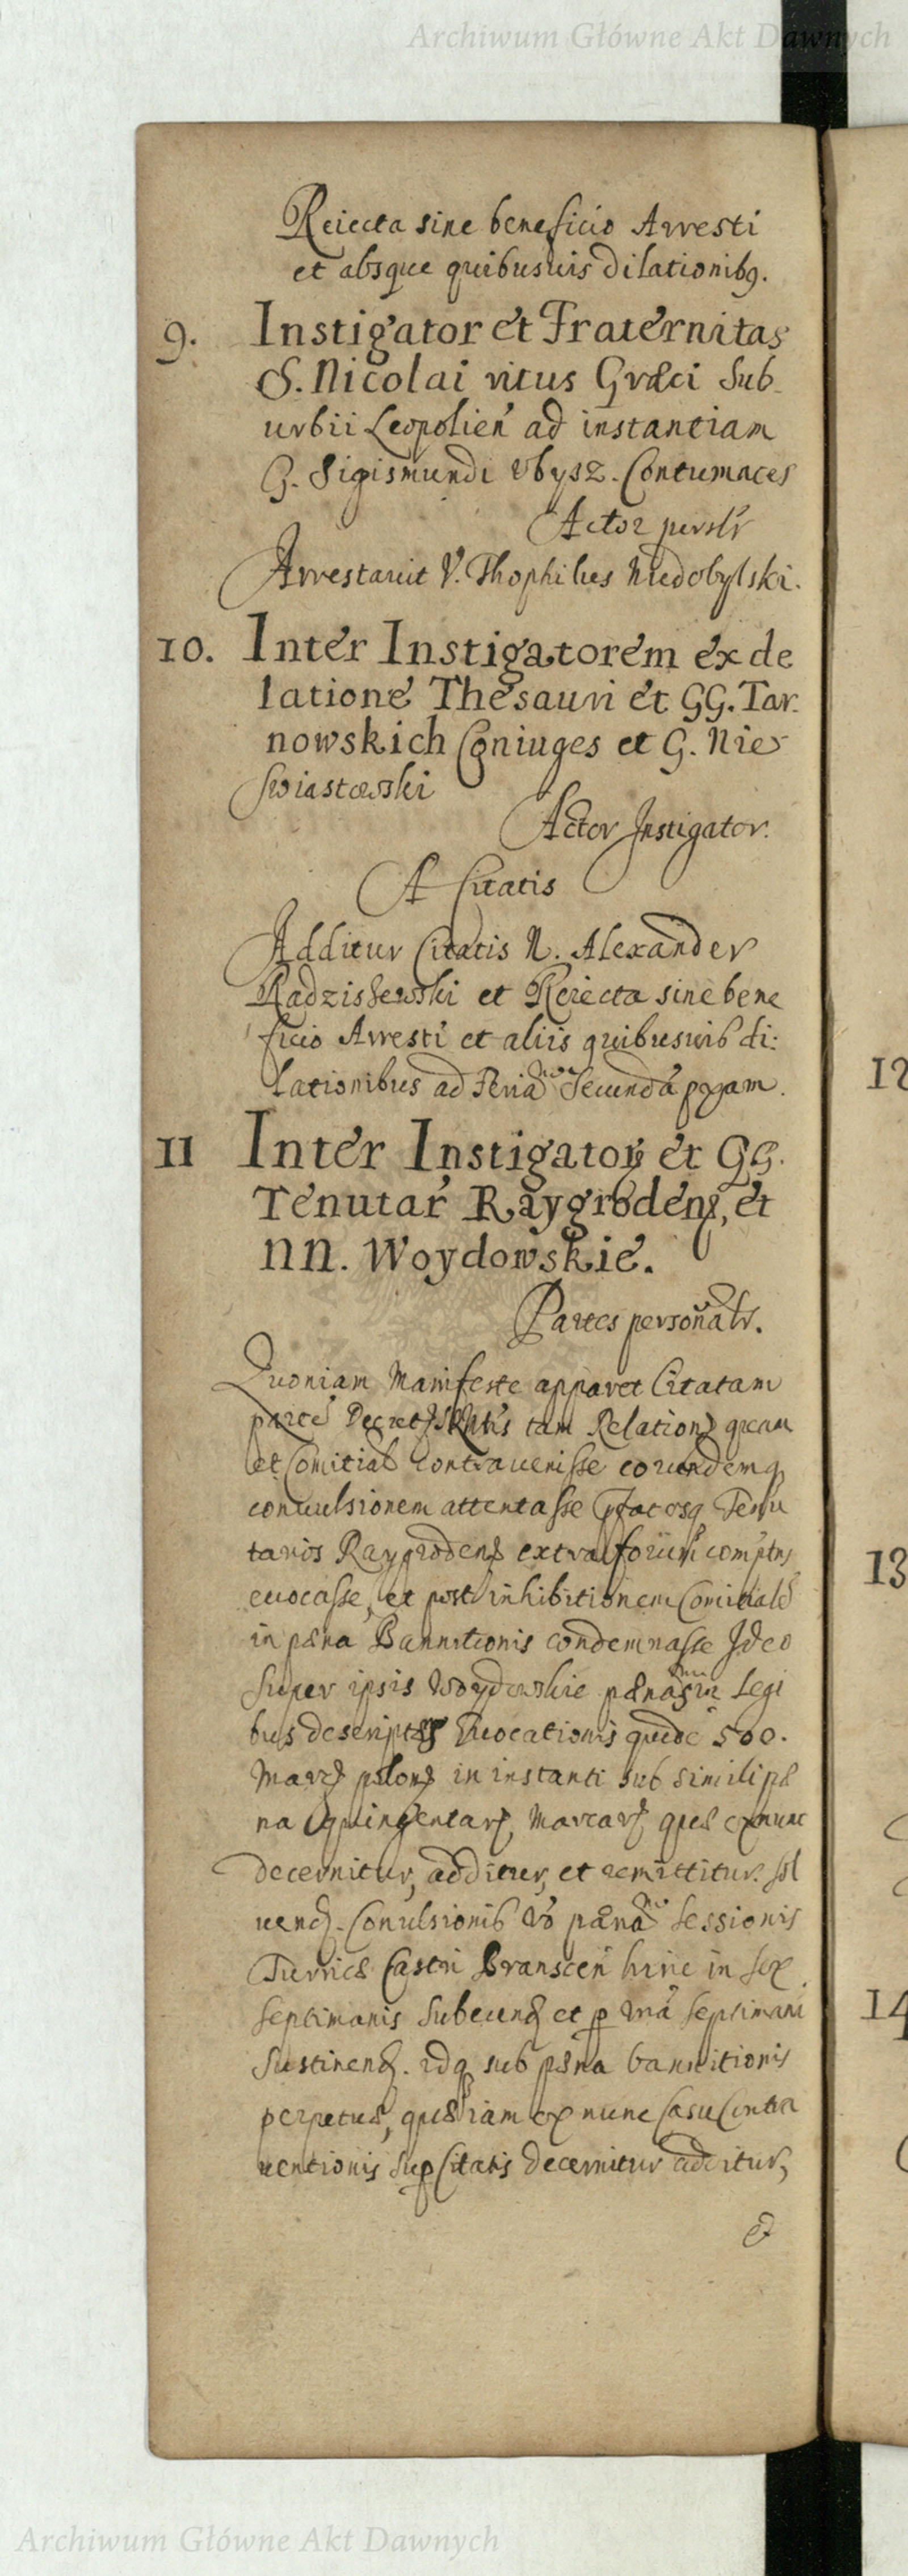 Archiwum Główne Akt Dawnych
Reiecta sine beneficio Arresti
et absque quibusuis dilationibꝰ.
9. Instigator et Fraternitas
S. Nicolai ritus Græci Sub
urbii Leopolień ad instantiam
G. Sigismundi Vbysz. Contumaces
Actor
Arrestauit V. Thophilus Niedobylski.
10. Inter Instigatorem ex de
latione Thesauri et GG. Tar
nowskich Coniuges et G. Nie
swiastowski
Actor Instigator.
A Citatis
Additur Citatis N. Alexander
Radziszewski et Reiecta sine bene
ficio Arresti et aliis quibusuis di:
lationibus ad Feriā Secundā pxam.
11 Inter Instigatorē et GG.
Tenutar Raygrodenꝭ, et
NN. Woydowskie.
Partes personalr.
Quoniam Manifeste apparet Citatam
partē Decretꝭ tam Relationꝭ quam
et Comitialꝭ contrauenisse eorundemqꝫ
conuulsionem attentasse Tenu
tarios Raygrodenꝭ extra forum
euocasse, et post inhibitionem Comitialē
in pæna Bannitionis condemnasse Ideo
super ipsis Woydowskie pænas in Legi
bus descriptas Euocationis quidē 500.
Marcꝭ polonꝭ in instanti sub simili pæ
na quingentarꝭ Marcarꝭ quæ exnunc
decernitur, additur, et remittitur. sol
uendꝭ. Conulsionis vō pænā sessionis
Turris Castri Branscen hinc in sex
septimanis subeundꝭ et ꝑ unā septimanā
sustinendꝭ. idqꝫ sub pæna bannitionis
perpetuæ, quæ iam ex nunc casu Contra
uentionis suꝑ Citatis decernitur additur,
et
12
13
14
Archiwum Główne Akt Dawnych